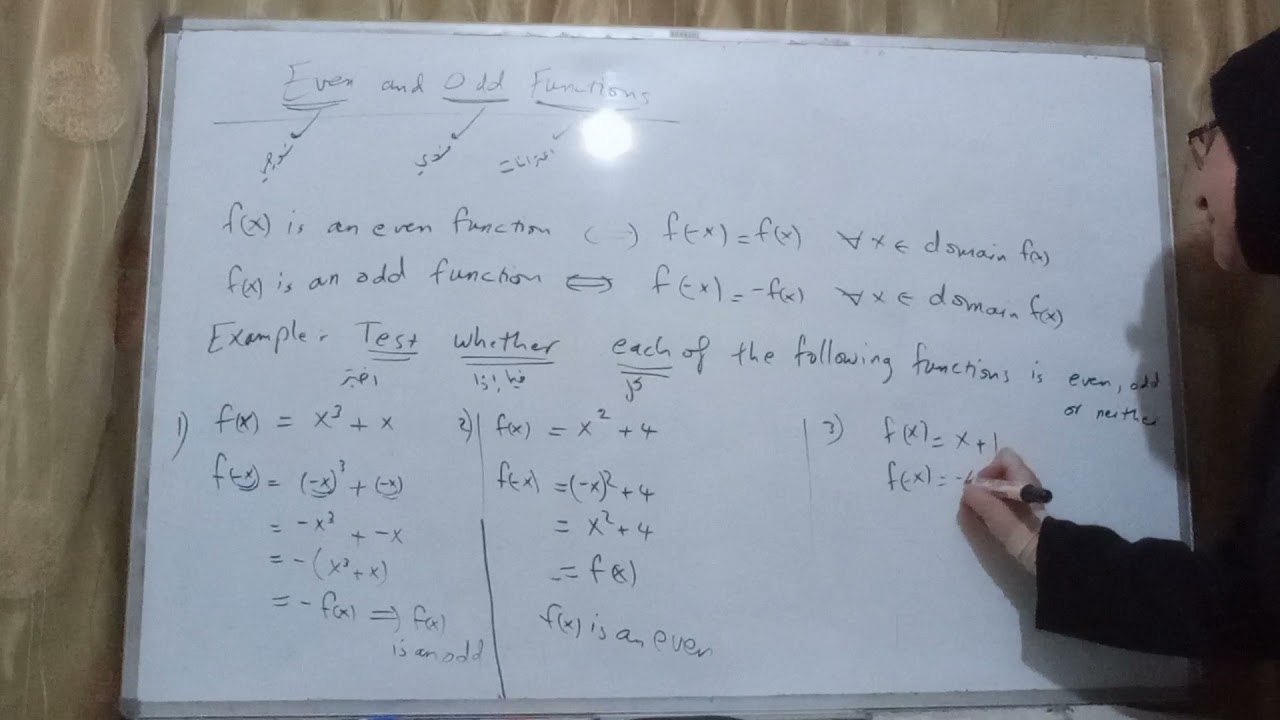 Even and Odd Functions
زوجي فردي اقترانات
f(x) is an even function ( ) f(-x) = f(x) ∀ x ∈ domain f(x)
f(x) is an odd function ⇔ f(-x) = -f(x) ∀ x ∈ domain f(x)
Example: Test whether each of the following functions is even, odd
or neither
اختبر فيما إذا كل
1) f(x) = x³ + x
f(-x) = (-x)³ + (-x)
= -x³ + -x
= -(x³ + x)
= -f(x) ⇒ f(x)
is an odd
2) f(x) = x² + 4
f(-x) = (-x)² + 4
= x² + 4
= f(x)
f(x) is an even
3) f(x) = x + 1
f(-x) = -